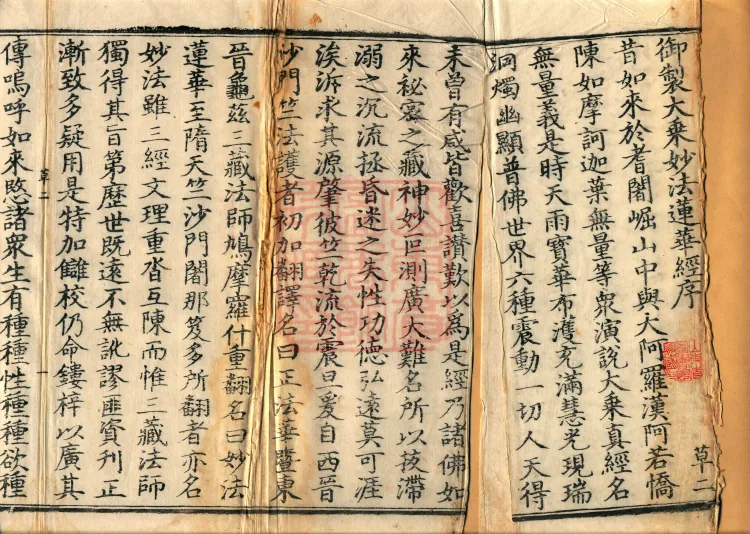 御製大乗妙法蓮華經序
昔如來於耆闍崛山中與大阿羅漢阿若憍
陳如摩訶迦葉無量等衆演說大乗真經名
無量義是時天雨寶華布濩充滿慧光現瑞
洞燭幽顯普佛世界六種震動一切人天得
未曾有咸皆歡喜讃歎以為是經乃諸佛如
來秘宻之藏神妙叵測廣大難名所以拔滯
溺之沉流拯昏迷之失性功德弘遠莫可涯
涘泝求其源肇彼竺乾流於震旦爰自西晉
沙門竺法護者初加翻譯名曰正法華暨東
晉龜茲三藏法師鳩摩羅什重翻名曰妙法
蓮華至隋天竺沙門闍那笈多所翻者亦名
妙法雖三經文理重沓互陳而惟三藏法師
獨得其旨第歷世旣遠不無訛謬匪資刋正
漸致多疑用是特加讎校仍命鏤梓以廣其
傳嗚呼如來愍諸衆生有種種性種種欲種
草二
草二
一